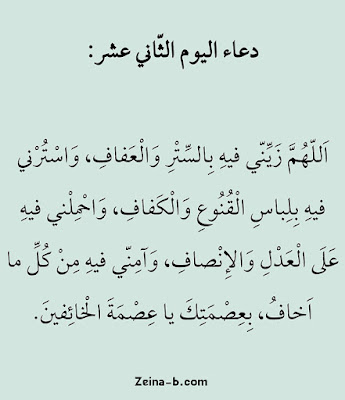 دعاء اليوم الثّاني عشر:
اَللّهُمَّ زَيِّنّي فيهِ بِالسِّتْرِ وَالْعَفافِ، وَاسْتُرْني
فيهِ بِلِباسِ الْقُنُوعِ وَالْكَفافِ، وَاحْمِلْني فيهِ
عَلَى الْعَدْلِ وَالاِنْصافِ، وَآمِنّي فيهِ مِنْ كُلِّ ما
اَخافُ، بِعِصْمَتِكَ يا عِصْمَةَ الْخائِفينَ.
Zeina-b.com